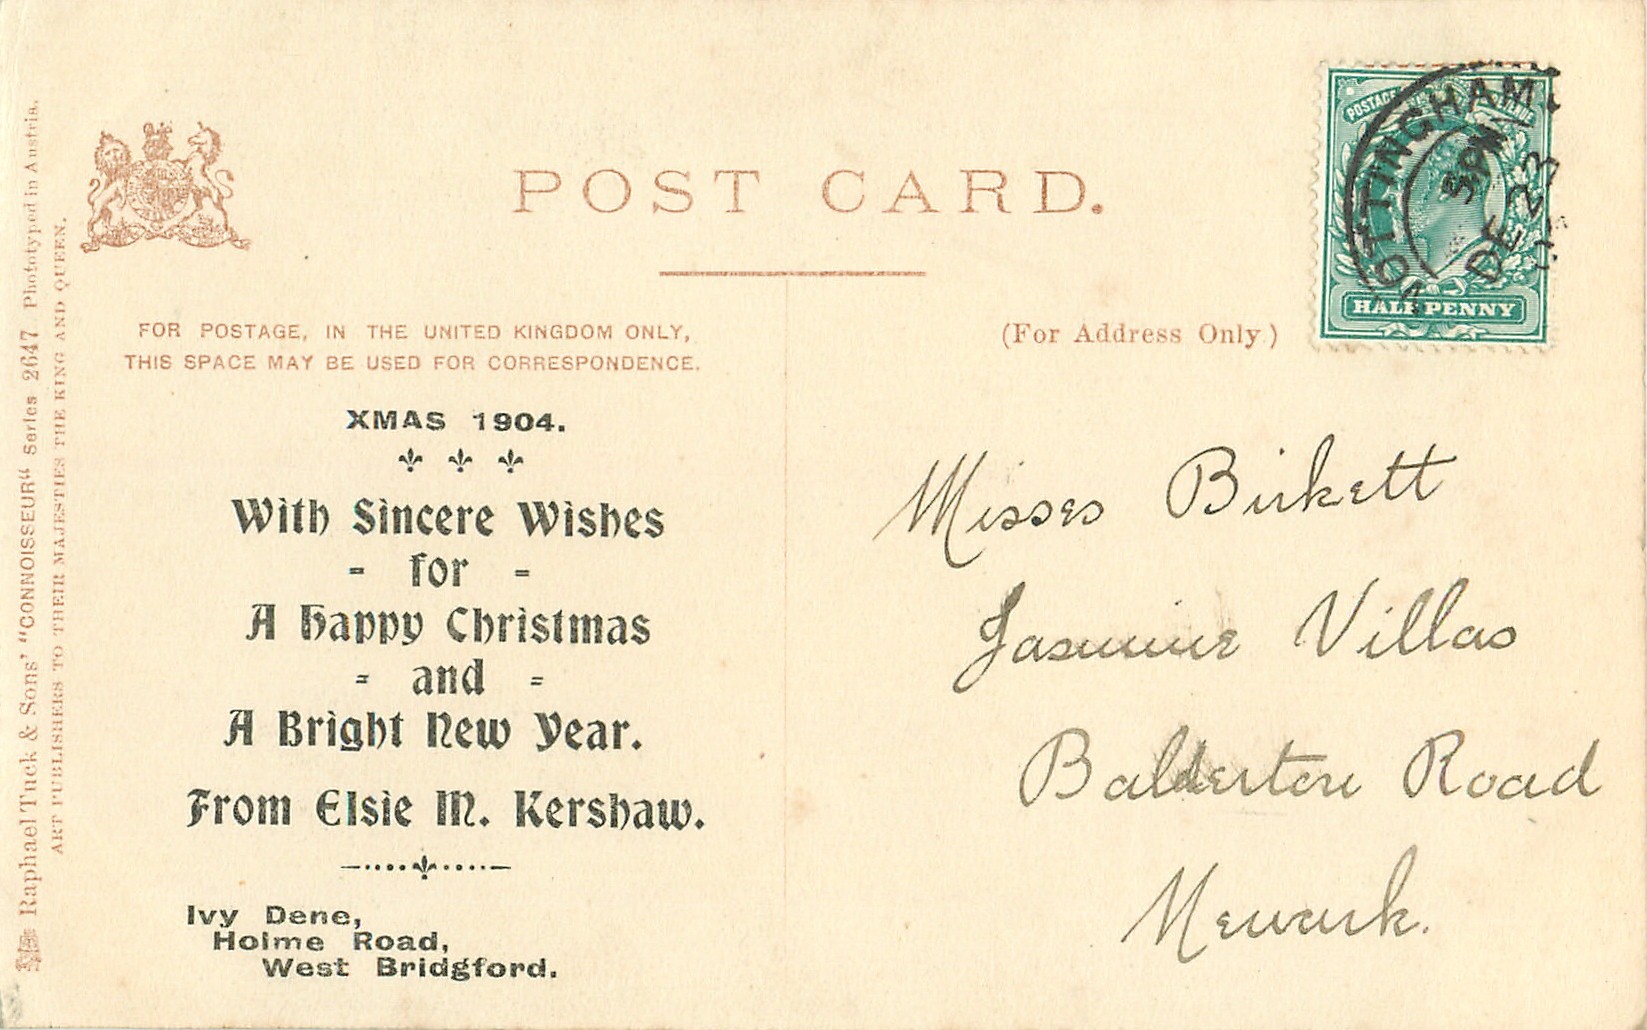 POST CARD.
FOR POSTAGE, IN THE UNITED KINGDOM ONLY,
THIS SPACE MAY BE USED FOR CORRESPONDENCE.
(For Address Only)
XMAS 1904.
With Sincere Wishes
- for -
A Happy Christmas
- and -
A Bright New Year.
From Elsie M. Kershaw.
Ivy Dene,
Holme Road,
West Bridgford.
Misses Birkett
Jasmine Villas
Balderton Road
Newark.
POSTAGE
HALFPENNY
NOTTINGHAM
5 PM
DE 23
Raphael Tuck & Sons' "CONNOISSEUR" Series 2647 Phototyped in Austria.
ART PUBLISHERS TO THEIR MAJESTIES THE KING AND QUEEN.